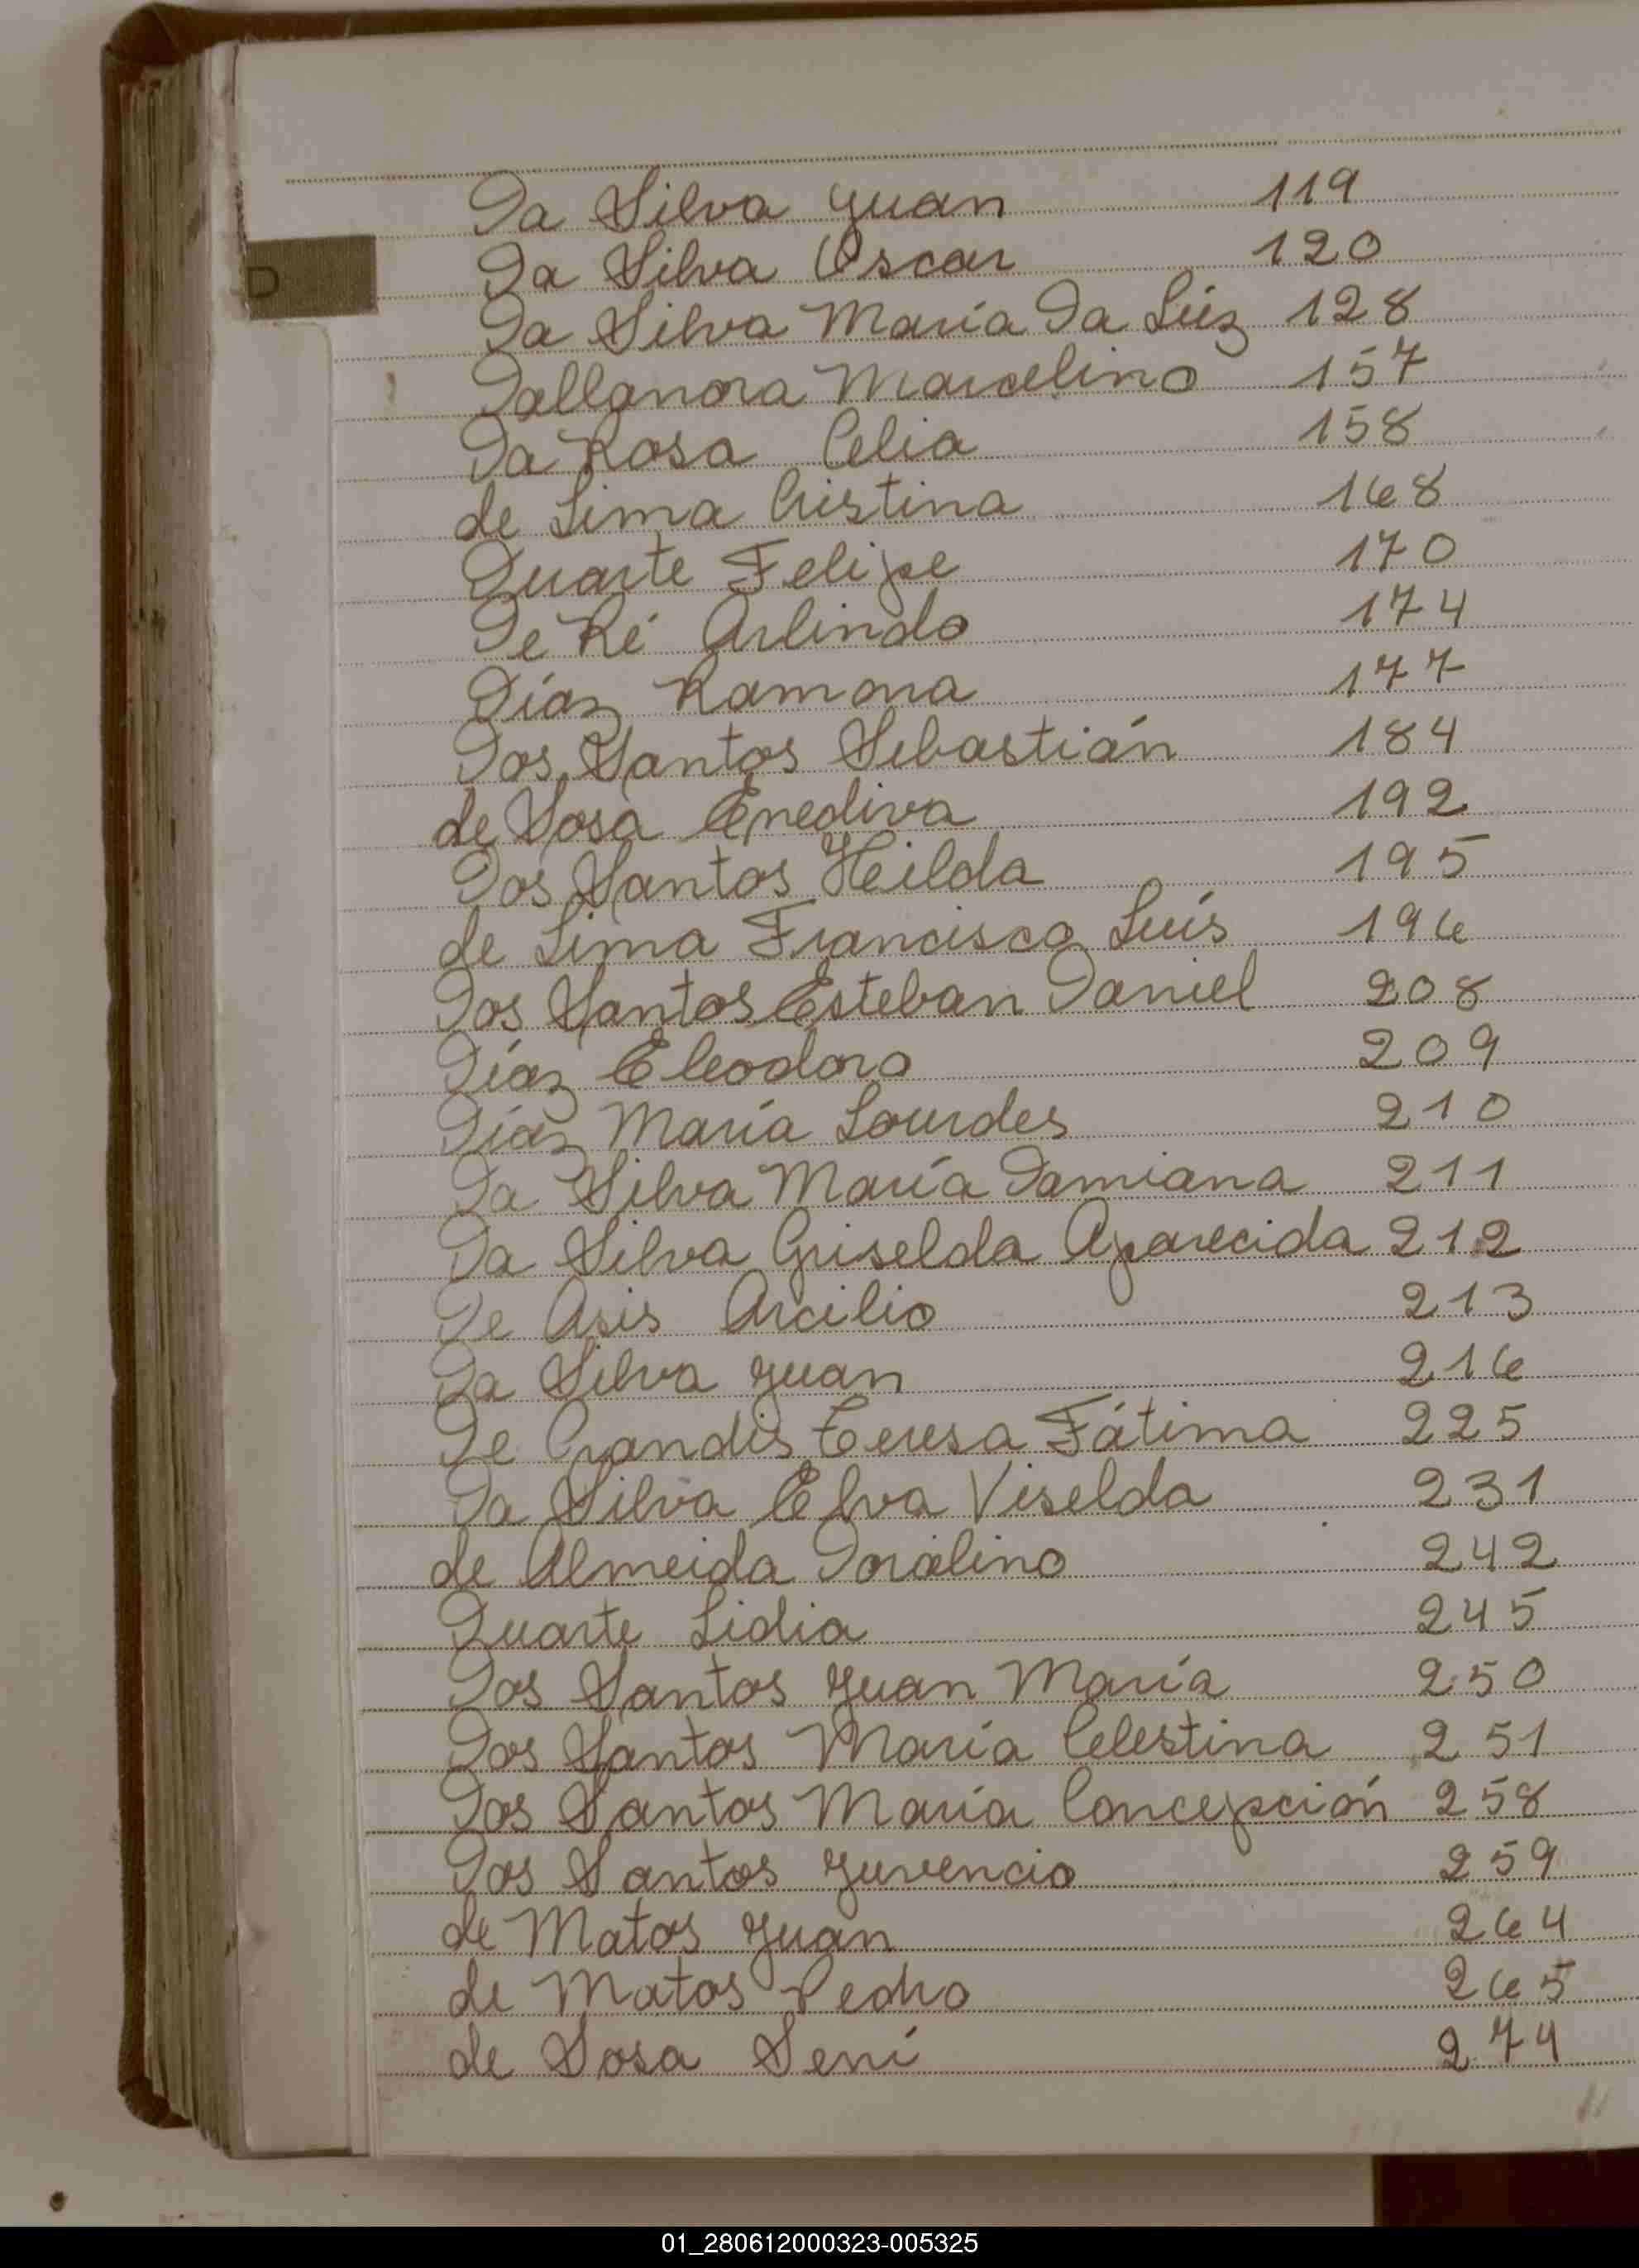 Da Silva Juan 119
D
Da Silva Oscar 120
Da Silva María Da Lúz 128
Dallanora Marcelino 157
Da Rosa Celia 158
de Lima Cristina 168
Duarte Felipe 170
De Ré Arlindo 174
Díaz Ramona 177
Dos Santos Sebastián 184
de Sosa Enediva 192
Dos Santos Heilda 195
de Lima Francisco Luís 196
Dos Santos Esteban Daniel 208
Díaz Eleodoro 209
Díaz María Lourdes 210
Da Silva María Damiana 211
Da Silva Griselda Aparecida 212
De Asis Arcilio 213
Da Silva Juan 216
De Grandis Teresa Fátima 225
Da Silva Elva Viselda 231
de Almeida Doralino 242
Duarte Lidia 245
Dos Santos Juan María 250
Dos Santos María Celestina 251
Dos Santos María Concepción 258
Dos Santos Juvencio 259
de Matos Juan 264
de Matos Pedro 265
de Sosa Sení 274
01_280612000323-005325